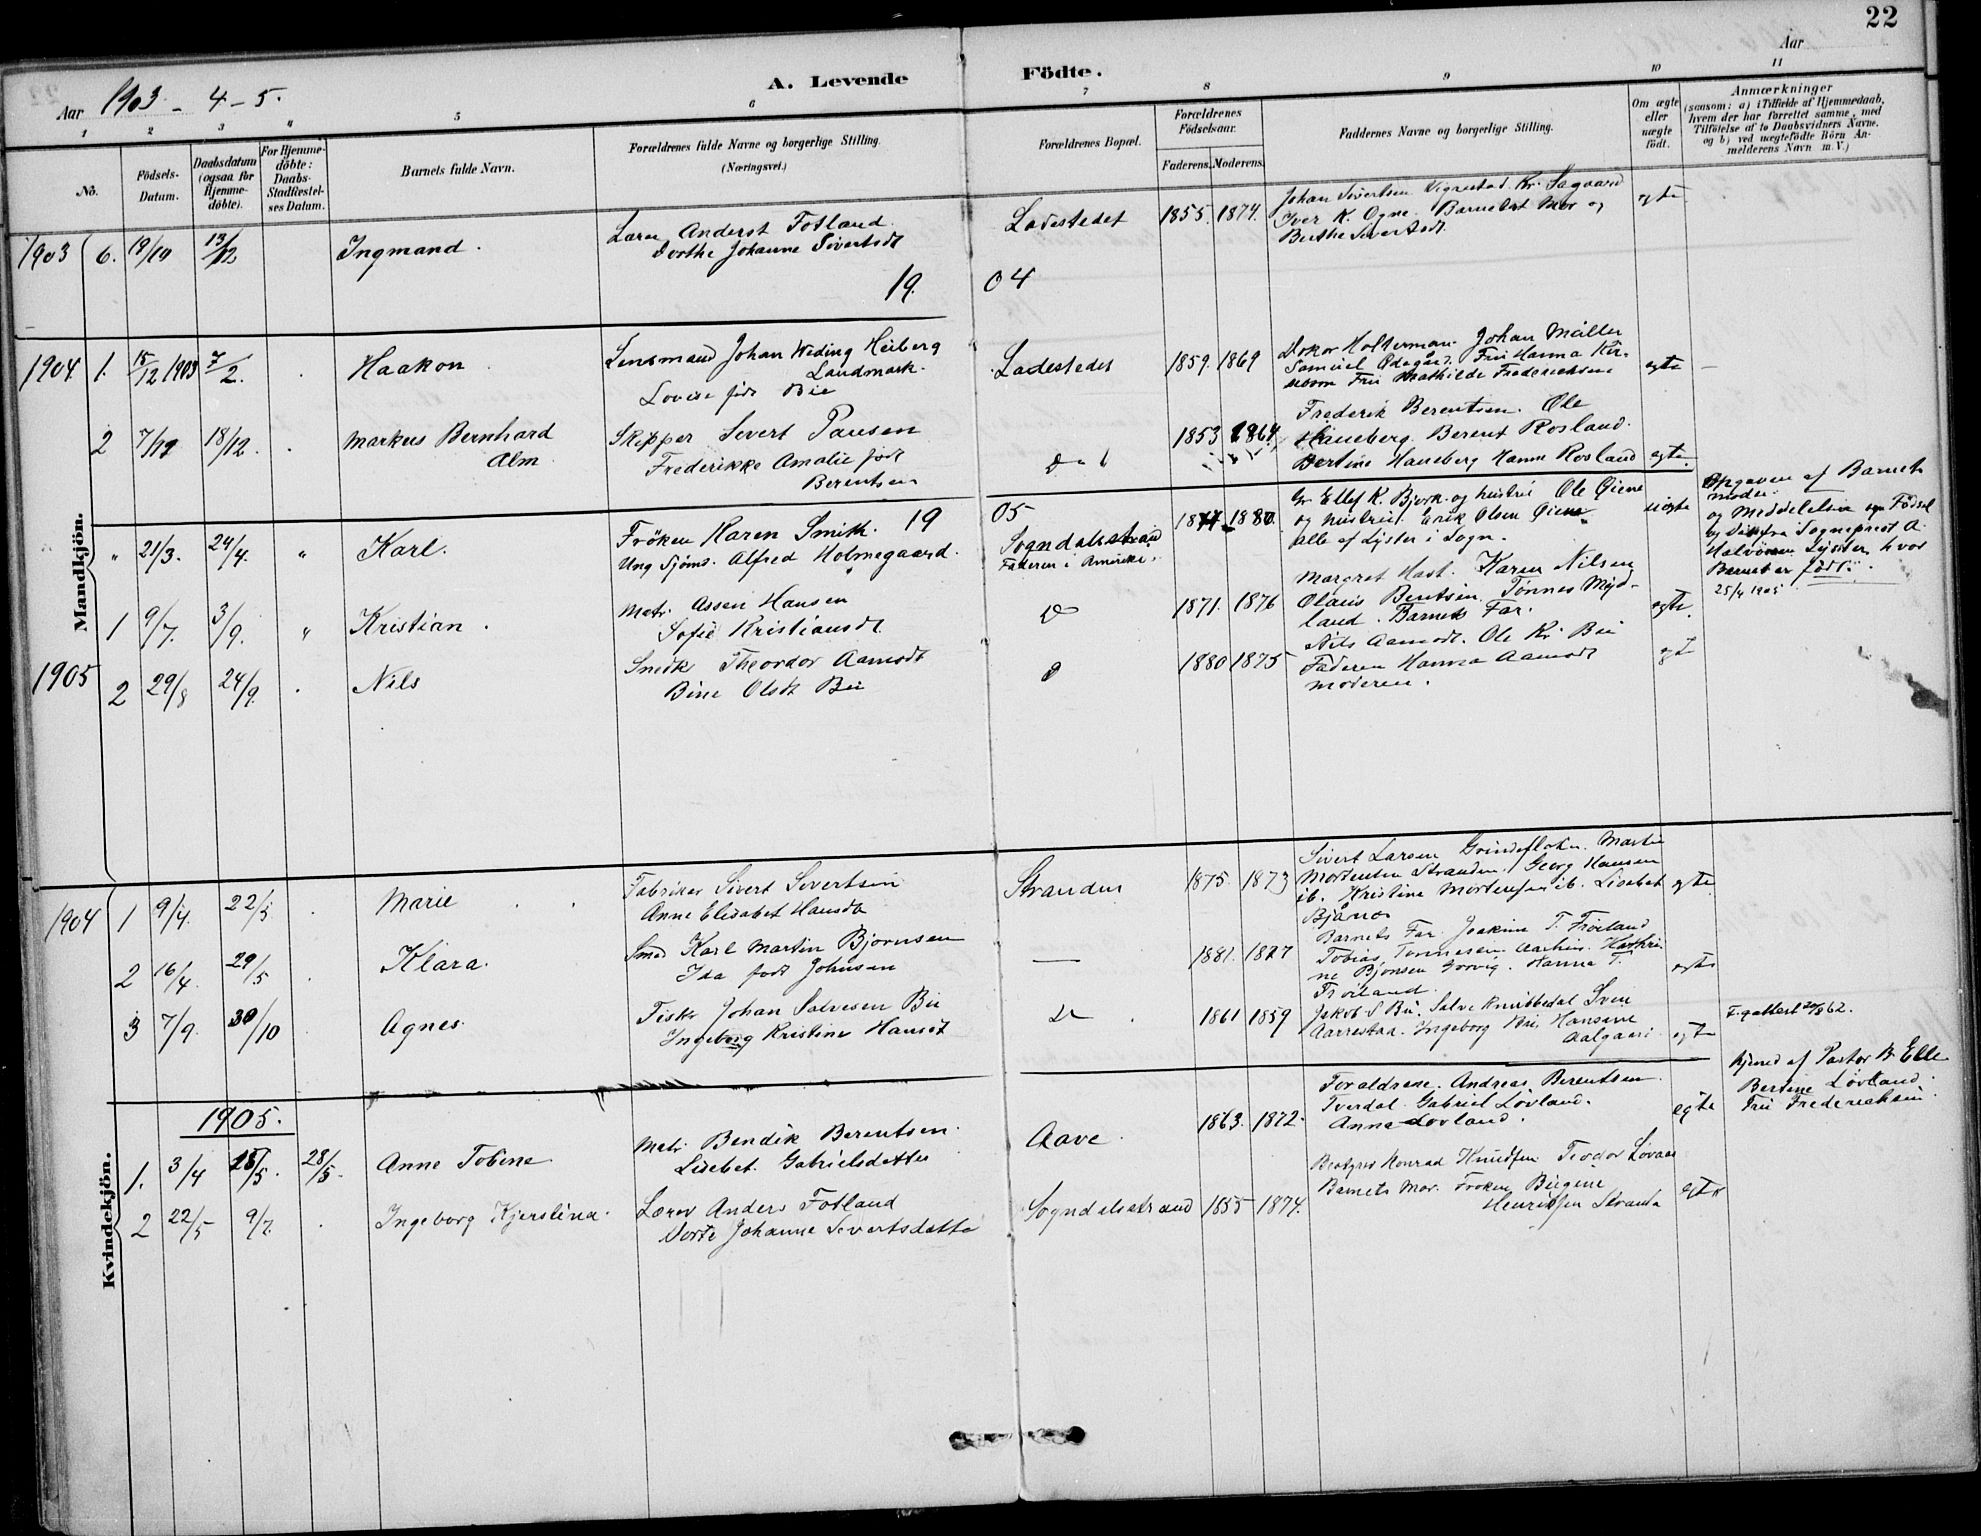 22
Aar 1903 - 4 - 5.
A. Levende Födte.
Aar
1 2 3 4 5 6 7 8 9 10 11
No.
Födsels-Datum.
Daabsdatum (ogsaa for Hjemme-döbte).
For Hjemme-döbte: Daabs-Stadfæstel-ses Datum.
Barnets fulde Navn.
Forældrenes fulde Navne og borgerlige Stilling.
(Næringsvei.)
Forældrenes Bopæl.
Forældrenes Födselsaar.
Faderens. Moderens.
Faddernes Navne og borgerlige Stilling.
Om ægte eller uægte födt.
Anmærkninger
(saasom: a) i Tilfælde af Hjemmedaab,
hvem der har forrettet samme, med
Tilföielse af to Daabsvidners Navne.
og b) ved uægtefödte Börn An-
melderens Navn m. V.)
Mandkjön.
1903 6. 19/10 13/12 Ingmand.
Lærer Anderst Fotland.
Dorthe Johanne Sivertsdt
Ladestedet 1855. 1874.
Johan Sivertsen Vignestad. Kr. Sagaard
Iver K. Ogne. Barnets Mor og
Berthe Sivertsdt
egte
19 04
1904 1. 15/12 1903 7/2. Haakon
Lensmand Johan Weding Heiberg
Landmark.
Lovise født Bie
Ladestedet 1859. 1869
Dokor Holterman. Johan Müller
Samuel Ødegård. Fru Hanna
Fru Mathilde Frederiksen
egte
2 7/12 18/12. Markus Bernhard
Alm
Skipper Severt Pausen
Frederikke Amalie født
Berentsen
1853 1864.
Frederik Berentsen. Ole
Haneberg. Berent Rosland.
Bertine Haneberg Hanne Rosland
egte.
19 05
" 21/3. 24/4. " Karl.
Fröken Karen Smith.
Ung Sjöms. Alfred Holmegaard.
Sogndalsstrand
Faderen i Amerika.
1880.
Gr. Ellef K. Bjork og hustru Ole Øiene
og hustru. Erik Olsen Øiene
alle af Lyster i Sogn.
uegte
Opgaven af Barnets
moder.
og Meddelelse om Födsel
og Daab fra Sogneprest A.
Halvorsen Lyster, hvor
Barnet er født.
25/4 1905
1 9/7. 3/9. " Kristian.
Matr. Assen Hansen
Sofie Kristiansdt
Do 1871. 1876
Margret Hast. Karen Nilsen
Olaus Bentsen. Tønnes Myd-
land. Barnets Far.
egte.
1905 2 29/8 24/9. Nils
Snedk Theordor Aamodt
Bine Olsdt Bu
1880 1875
Nils Aamodt. Ole Kr Bu
Faderen Hanna Aamodt
moderen.
egt
Kvindekjön.
1904 1 9/4. 22/5 Marie
Fabrikar Sivert Sivertsen
Anne Elisabet Hansdt
Stranden 1875. 1873
Sivert Larsen Grindeflaten. Martin
Mortensen Stranden. Georg Hansen
ib. Kristine Mortensen ib. Lisebet
Bjånes
egte.
2 16/4. 29/5 Klara.
Smed Karl Martin Bjornsen
Ida født Johnsen
— 1881. 1877
Barnets Far. Joakim T. Frøiland
Tobias Tønnesen. Kathri-
ne Bjonsen. Hanna T.
Frøiland.
egte
3 7/9. 30/10 Agnes.
Fisk Johan Salvesen Bu
Ingeborg Kristine Hansdt
1861 1859
Jakob S Bu. Salve Knubbedal Sven
Aarrestad. Ingeborg Bu. Hansine
Aalgaard
egte
F. gattest 20/8 62.
1905.
1. 3/4 15/5. 28/5. Anne Tobine
Matr. Bendik Berentsen.
Lisebet Gabrielsdatter
Aave. 1863. 1872.
Forældrene. Andreas Berentsen
Tverdal. Gabriel Lovland.
Anna Lovland.
egte
Hjemd af Pastor B. Elle
Bertine Lovland.
Fru Frederiksen.
2 22/5 9/7. Ingeborg Kjerstina.
Lærer Anders Fotland
Dorte Johanne Severtsdatter
Sogndalsstrand 1855 1874.
Konrad Knudsen Teodor Lovaas
Barnets Mor. Froken Birgine
Henriksen Stranda
egte